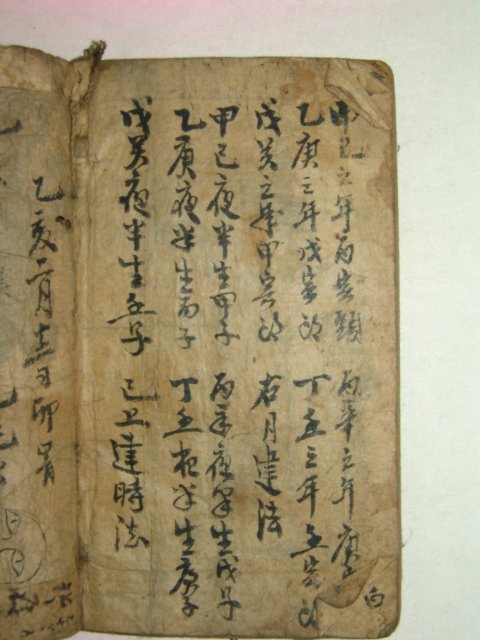 甲己之年丙寅頭 丙辛之年庚
乙庚之年戊寅頭 丁壬之年壬寅頭
戊癸之年甲寅頭 右月建法
甲己夜半生甲子 丙辛夜半生戊子
乙庚夜半生丙子 丁壬夜半生庚子
戊癸夜半生壬子 已上建時法
乙亥二月十二日卯時